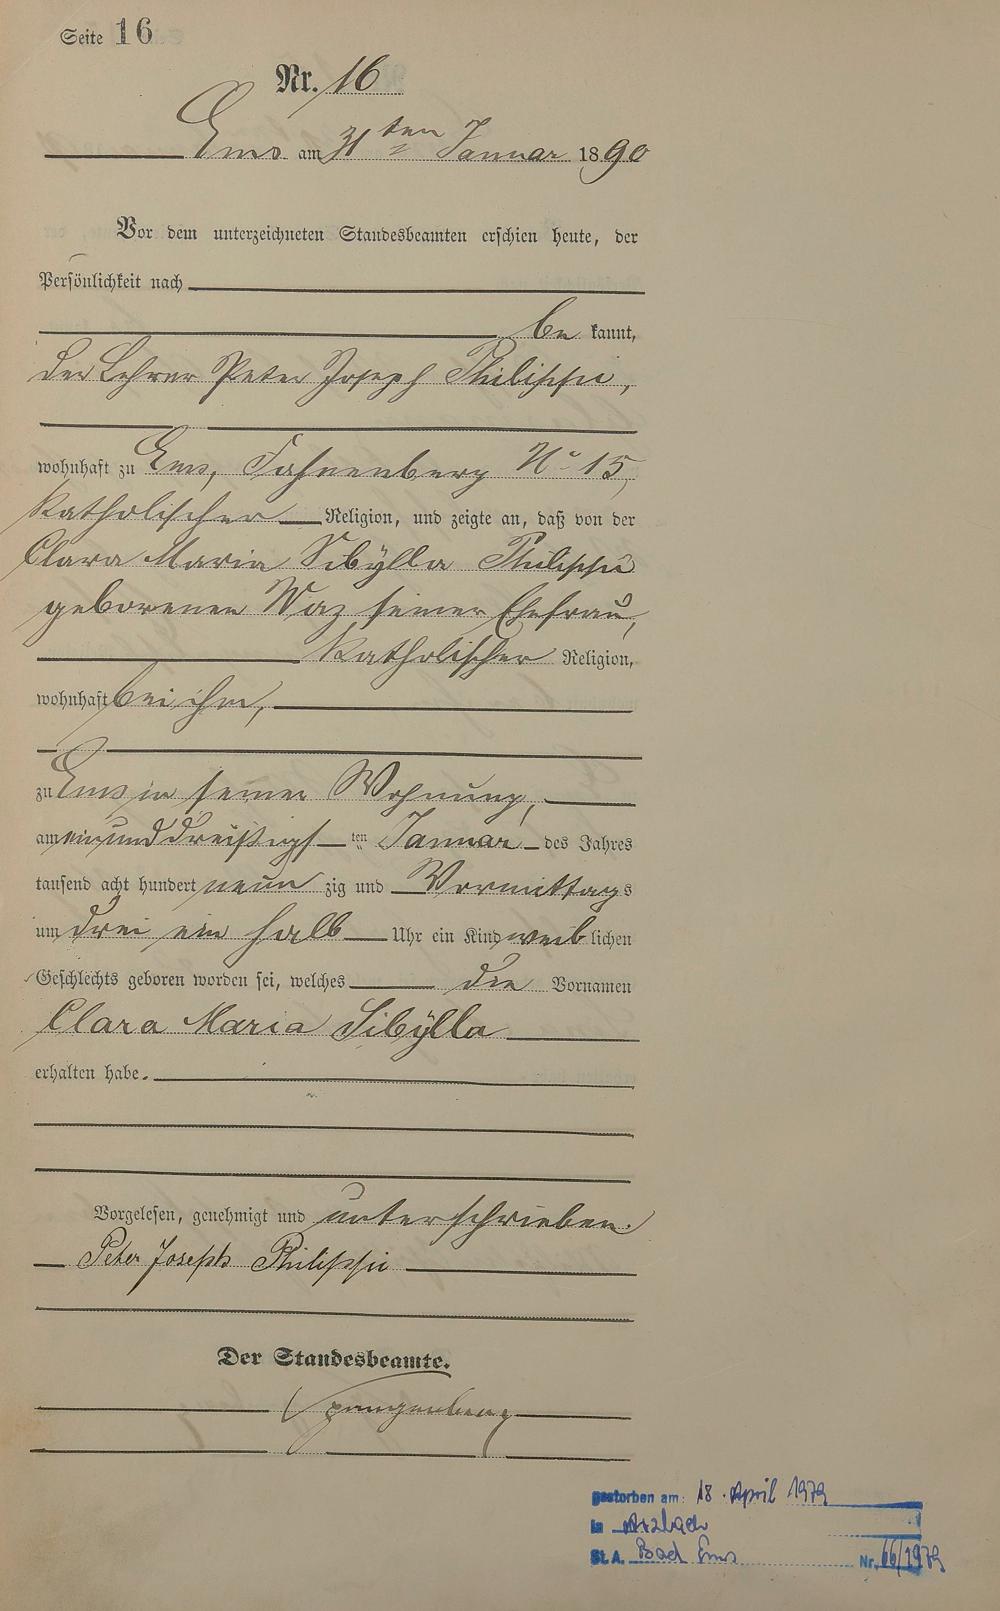 Seite 16
Nr. 16
Ems am 31ten Januar 1890
Vor dem unterzeichneten Standesbeamten erschien heute, der
Persönlichkeit nach
be kannt,
der Lehrer Peter Joseph Philippi,
wohnhaft zu Ems, No 15,
katholischer Religion, und zeigte an, daß von der
Clara Maria Sibÿlla Philippi
geborenen Waz, seiner Ehefrau,
katholischer Religion,
wohnhaft bei ihm,
zu Ems in seiner Wohnung,
am einunddreißigs ten Januar des Jahres
tausend acht hundert neun zig und Vormittags
um drei ein halb Uhr ein Kind weiblichen
Geschlechts geboren worden sei, welches die Vornamen
Clara Maria Sibÿlla
erhalten habe.
Vorgelesen, genehmigt und unterschrieben.
Peter Joseph Philippi
Der Standesbeamte.
Spangenberg
gestorben am: 18. April 1979
in Arzbach
St.A. Bad Ems Nr. 66/1979